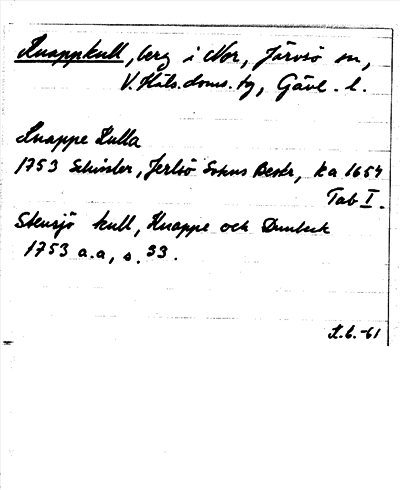 Knappkull, berg i Nor, Järvsö sn,
V. Häls. doms. tg, Gävl. l.
Knappe Kulla
1753 Schissler, Jerlsö Sokns Beskr, ka 1654
Tab I.
Stensjö kull, Knappe och
1753 a.a, s. 33.
-61